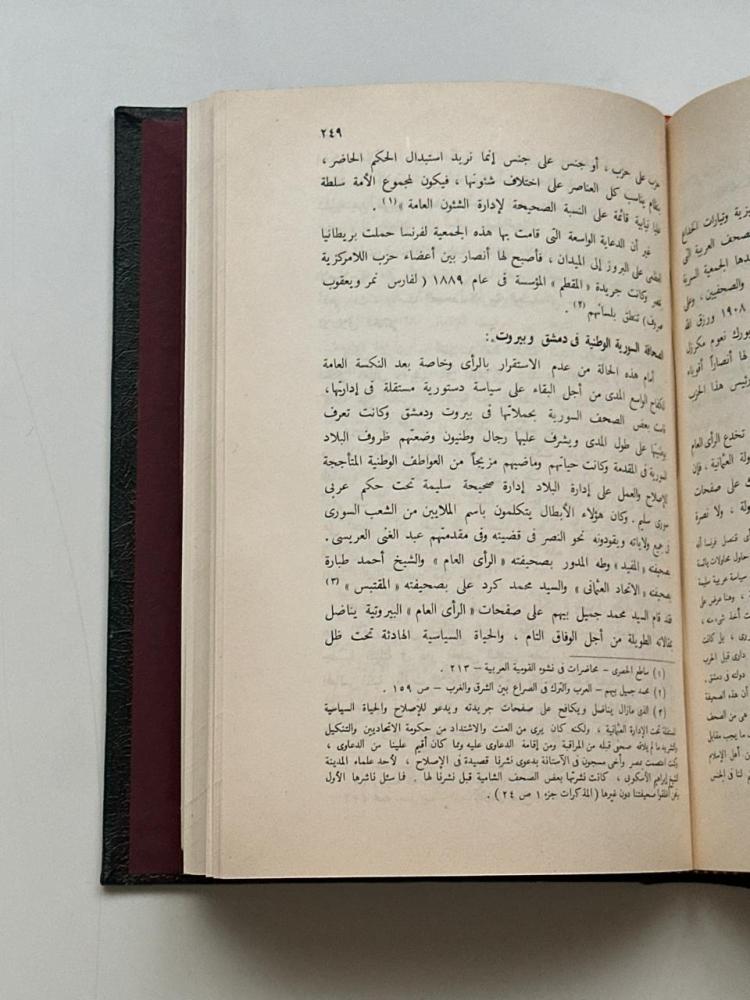 ٢٤٩
حزب على حزب ، أو جنس على جنس إنما نريد استبدال الحكم الحاضر ،
بنظام يناسب كل العناصر على اختلاف شئونها ، فيكون لمجموع الأمة سلطة
عليا نيابية قائمة على النسبة الصحيحة لإدارة الشئون العامة » (١) .
غير أن الدعاية الواسعة التى قامت بها هذه الجمعية لفرنسا حملت بريطانيا
العظمى على البروز إلى الميدان ، فأصبح لها أنصار بين أعضاء حزب اللامركزية
بمصر وكانت جريدة « المقطم » المؤسسة فى عام ١٨٨٩ ( لفارس نمر ويعقوب
صروف ) تنطق بلسانهم (٢) .
الصحافة السورية الوطنية فى دمشق وبيروت :
أمام هذه الحالة من عدم الاستقرار بالرأى وخاصة بعد النكسة العامة
للكفاح الواسع المدى من أجل البقاء على سياسة دستورية مستقلة فى إدارتها،
قامت بعض الصحف السورية بحملاتها فى بيروت ودمشق وكانت تعرف
بوطنيتها على طول المدى ويشرف عليها رجال وطنيون وضعتهم ظروف البلاد
السورية فى المقدمة وكانت حياتهم وماضيهم مزيجاً من العواطف الوطنية المتأججة
للإصلاح والعمل على إدارة البلاد إدارة صحيحة سليمة تحت حكم عربى
سورى سليم . وكان هؤلاء الأبطال يتكلمون باسم الملايين من الشعب السورى
فى جميع ولاياته ويقودونه نحو النصر فى قضيته وفى مقدمتهم عبد الغنى العريسى.
بصحيفته « المفيد » وطه المدور بصحيفته « الرأى العام » والشيخ أحمد طبارة
بصحيفته « الاتحاد العثمانى » والسيد محمد كرد على بصحيفته « المقتبس » (٣)
فقد قام السيد محمد جميل بيهم على صفحات « الرأى العام » البيروتية يناضل
بمقالاته الطويلة من أجل الوفاق التام ، والحياة السياسية الهادئة تحت ظل
(١) ساطع الحصرى – محاضرات فى نشوء القومية العربية – ٢١٣ .
(٢) محمد جميل بيهم – العرب والترك فى الصراع بين الشرق والغرب – ص ١٥٩ .
(٣) الذى مازال يناضل ويكافح على صفحات جريدته ويدعو للإصلاح والحياة السياسية
المستقلة تحت الإدارة العثمانية ، ولكنه كان يرى من العنت والاشتداد من حكومة الاتحاديين والتنكيل
والتشريد ما لم يلاقه صحفى قبله من المراقبة ومن إقامة الدعاوى عليه وبما كان أقيم علينا من الدعاوى ،
وكنت اعتصمت بمصر وأخى مسجون فى الآستانة بدعوى نشرنا قصيدة فى الإصلاح ، لأحد علماء المدينة
الشيخ إبراهيم الأسكوبى ، كانت نشرتها بعض الصحف الشامية قبل نشرنا لها . فما سئل ناشرها الأول
بمن أغلقوا صحيفتنا دون غيرها ( المذكرات جزء ١ ص ٢٤ ) .